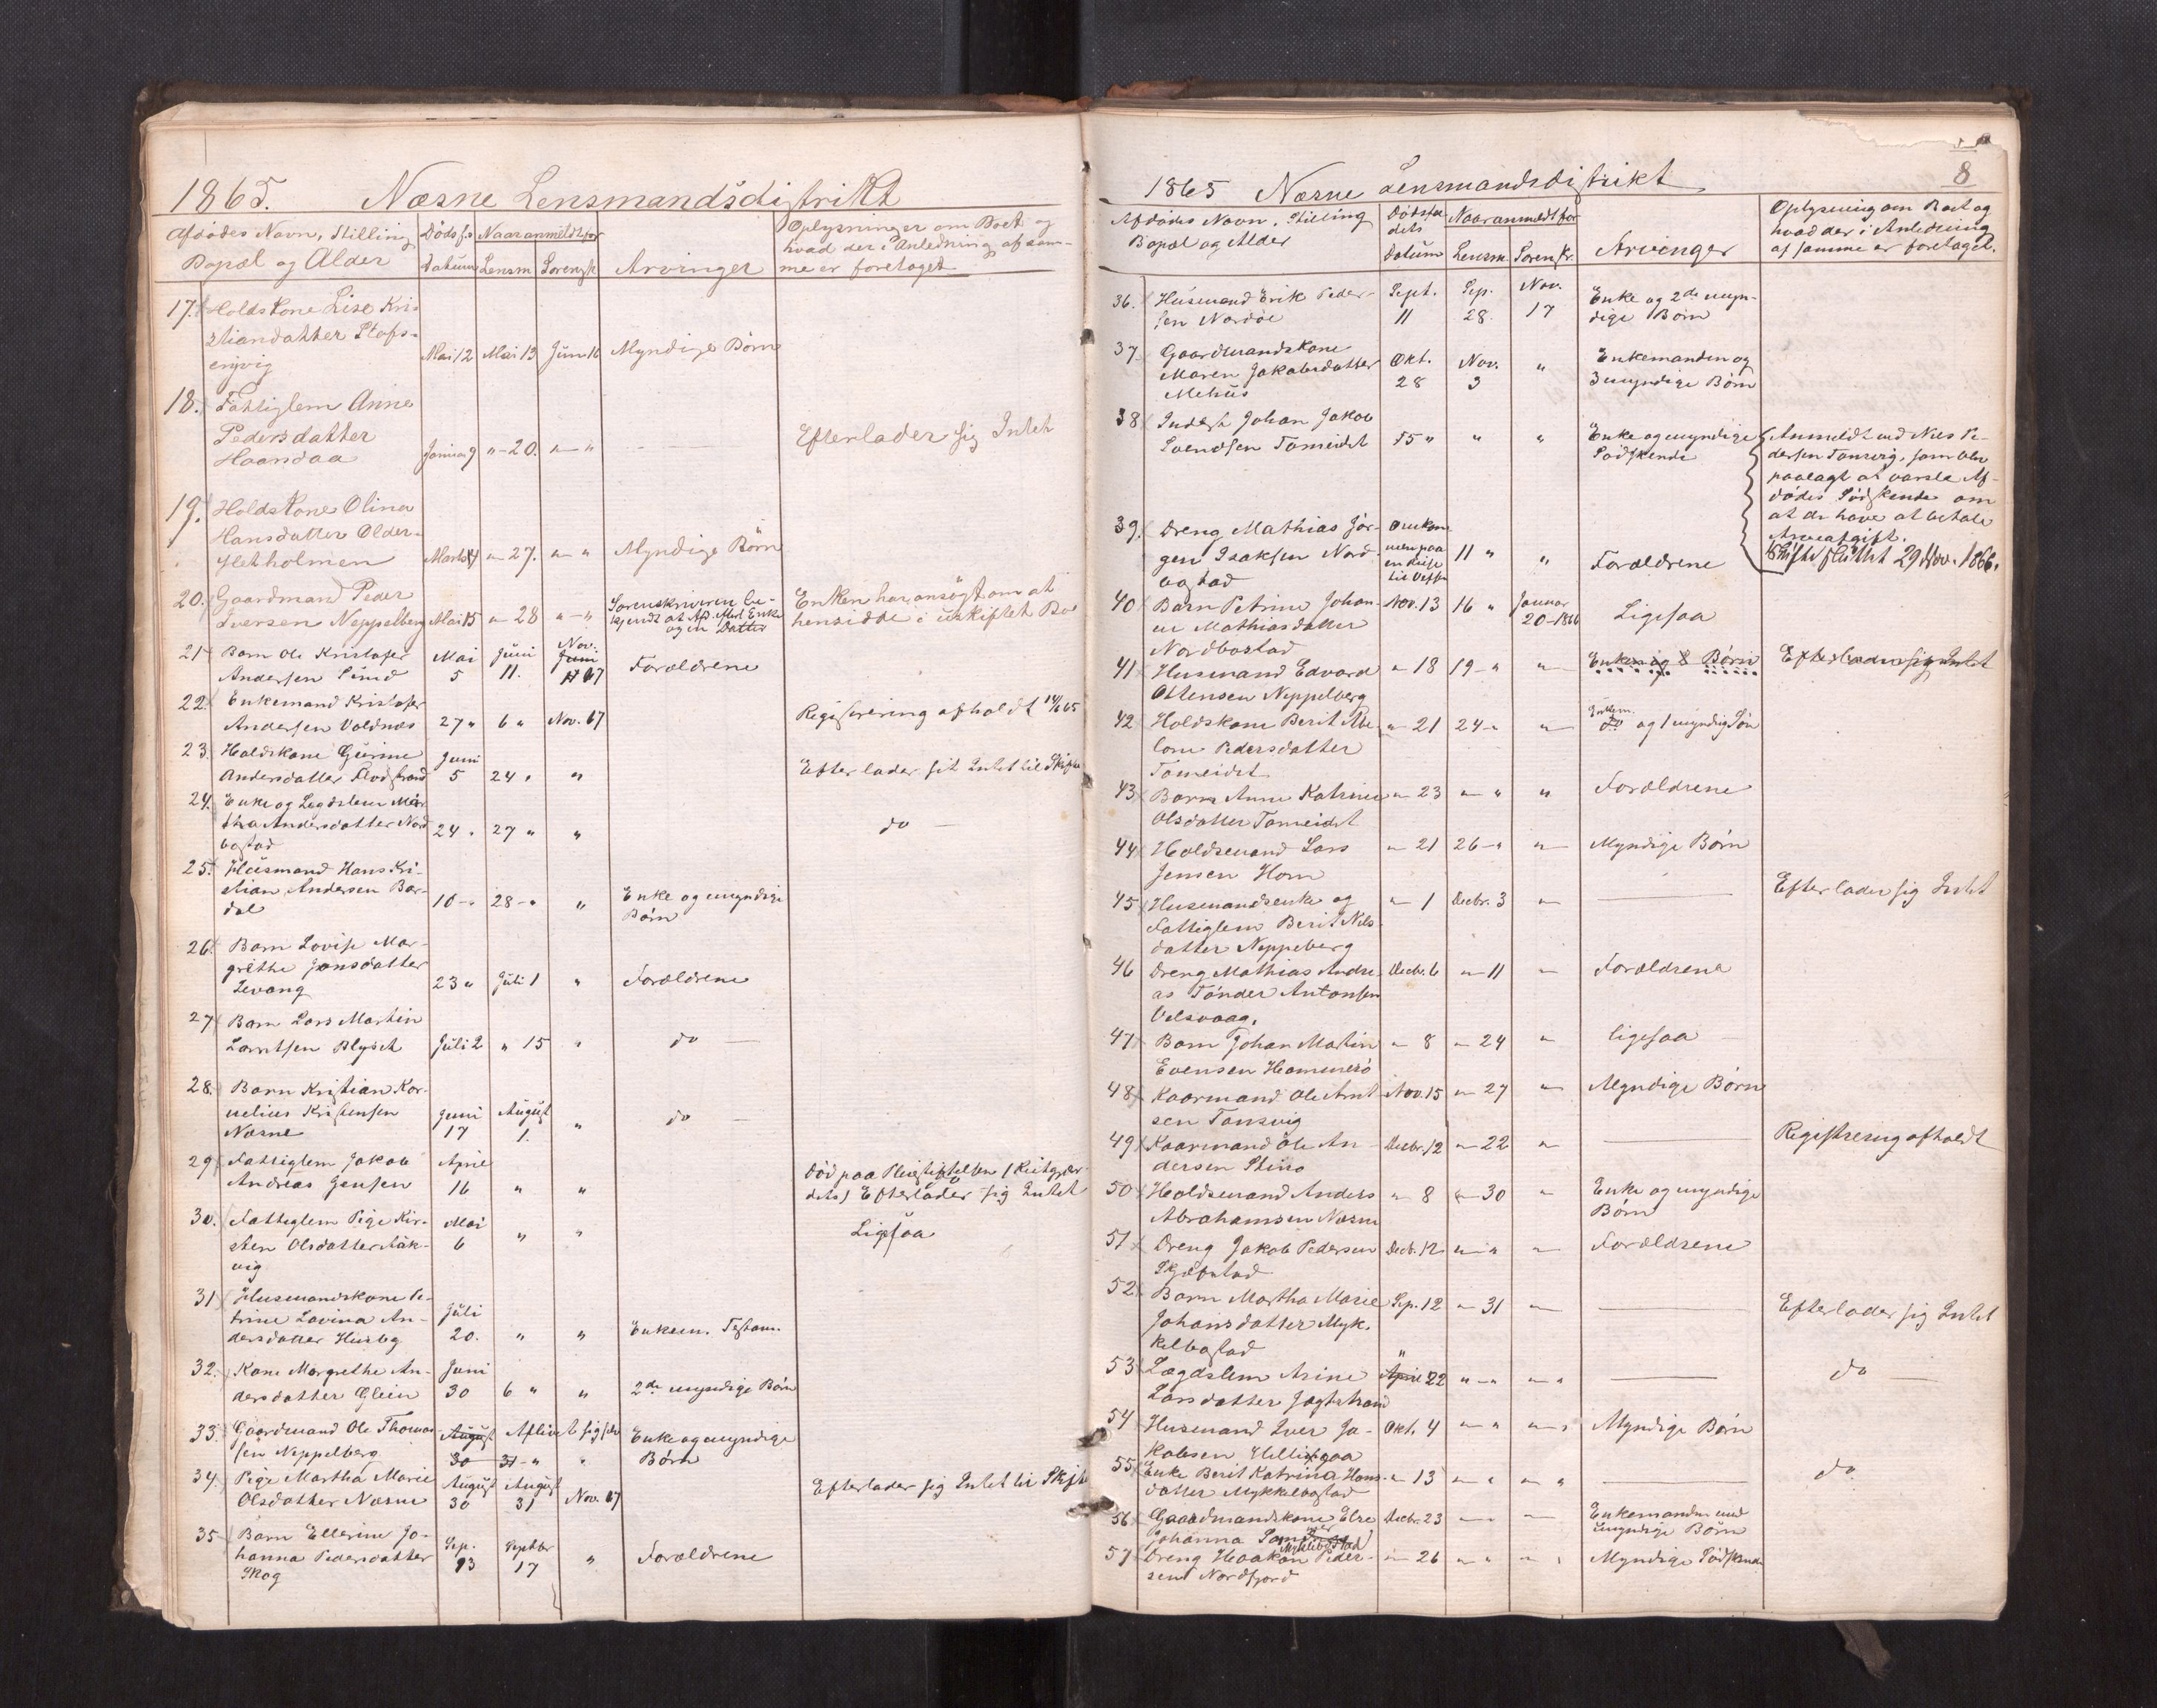 1865. Næsne Lensmandsdistrikt
Afdødes Navn, Stilling
Bopæl og Alder
Dødsf.s
Datum
Naar anmeldt for
Lensm. Sorensk.
Arvinger
Oplysninger om Boet og
hvad der i Anledning af sam-
me er foretaget
17. Holdskone Lise Kri-
stiandatter Stafs-
engvig Mai 12 Mai 13 Juni 16 Myndige Børn
18. Fattiglem Anne
Pedersdatter
Haandaa Januar 9 "-20. "-" Efterlader sig Intet
19. Holdskone Olina
Hansdatter Older-
fletholmen Marts " 27. " " Myndige Børn
20. Gaardmand Peder
Iversen Neppelberg Mai 15 " 28 " "
Sorenskriveren be-
kjendt at Afd. efterl. Enke
og en Datter
Enken har ansøgt om at
hensidde i uskiftet Bo
21 Barn Ole Kristofer
Andersen Sund Mai 5 Juni 11. Nov. Juni 17 Forældrene
22. Enkemand Kristofer
Andersen Valdnæs 27 " 6 " Nov. 17 Registrering afholdt 14/6 65
23. Holdskone Gurine
Andersdatter Flodstrand Juni 5 24 " " Efterlader sit Intet til Skifte
24. Enke og Lægdslem Mar-
tha Andersdatter Nord
bostad 24 " 27 " " do
25. Husmand Hans Kri-
stian Andersen Bar-
dal 10 - " 28 - " " Enke og myndige
Børn
26. Barn Lovise Mar-
grethe Jonsdatter
Levang 23 " Juli 1 " Forældrene
27 Barn Lars Martin
Larntsen Blyset Juli 2 " 15 " do
28. Barn Kristian Kor-
nelius Kristensen
Næsne Juni 17 August 1. " do
29 Fattiglem Jakob
Andreas Jensen April 16 " "
Død paa Pleiestiftelsen (Reitgjær-
det) Efterlader sig Intet
30. Fattiglem Pige Kir-
sten Olsdatter
vig Mai 6 " " Ligesaa
31 Husmandskone Pe-
trine Lovina An-
dersdatter Husby Juli 20. " " Enkem. Testam.
32. Kone Margrethe An-
dersdatter Glein Juni 30 6 " " 2de myndige Børn
33. Gaardmand Ole Thomas
sen Neppelberg August 30 Aflivet sig selv 31 - " " Enke og myndige
Børn
34. Pige Martha Marie
Olsdatter Næsne August 30 August 31 Nov. 17 Efterlader sig Intet til Skifte
35 Barn Ellerine Jo-
hanna Pedersdatter
Skog Sep. 13 Septbr 17 " Forældrene
8
1865 Næsne Lensmandsdistrikt
Afdødes Navn, Stilling
Bopæl og Alder
Dødsfal-
dets
Datum
Naar anmeldt for
Lensm. Sorenskr.
Arvinger
Oplysning om Boet og
hvad der i Anledning
af samme er foretaget.
36. Husmand Erik Peder-
sen Nordøe Sept. 11 Sep. 28. Nov. 17 Enke og 2de myn-
dige Børn
37 Gaardmandskone
Maren Jakobsdatter
Mehus Okt. 28 Nov. 3 " Enkemanden og
3 myndige Børn
38 Inderst Johan Jakob
Svendsen Tomeidet 15 " " " Enke og myndige
Sødskende
Anmeldt ved Niels Pe-
dersen Tonsvig, som blev
paalagt at varsle Af-
dødes Sødskende om
at de have at betale
Arveafgift.
Skifte sluttet 29 Nov. 1866.
39. Dreng Mathias Jør-
gen Isaksen Nord-
bostad Omkom-
men paa
en Reise
til Vefsn 11 " " Forældrene
40 Barn Petrine Johan-
ne Mathiasdatter
Nordbostad Nov. 13 16 " Januar
20-1866 Ligesaa
41 Husmand Edvard
Ottensen Neppelberg " 18 19 - " " Enken og 8 Børn Efterlader sig Intet
42 Holdskone Berit Abe-
lone Pedersdatter
Tomeidet " 21 24 - " " Enkem.
do og 1 myndig Søn
43 Barn Anne Katrine
Olsdatter Tomeidet " 23 " " " Forældrene
44 Holdsmand Lars
Jensen Horn " 21 26 - " " Myndige Børn
45 Husmandsenke og
Fattiglem Berit Nils-
datter Neppeberg " 1 Decbr. 3 " Efterlader sig Intet
46 Dreng Mathias Andre-
as Tønder Antonsen
Velsvaag. Decbr. 6 " 11 " Forældrene
47 Barn Johan Martin
Evensen Hammerø " 8 " 24 " ligesaa
48 Kaarmand Ole Arnt
sen Tonsvig Nov. 15 " 27 " Myndige Børn
49 Kaarmand Ole An-
dersen Decbr. 12 " 22 " Registrering afholdt
50 Holdsmand Anders
Abrahamsen Næsne " 8 " 30 " Enke og myndige
Børn
51 Dreng Jakob Pedersen
Decbr. 12 " " " Forældrene
52 Barn Martha Marie
Johansdatter Myk-
kelbostad Sep. 12 " 31 " Efterlader sig Intet
53 Lægdslem Arine
Larsdatter Jægtstrand " April 22 " - " " - " do
54 Husmand Iver Ja-
kobsen Hellingaa Okt. 4 " " " " Myndige Børn
55 Enke Berit Katrina Hans-
datter Mykkelbostad " 13 " " " " do
56 Gaardmandskone Else
Johanna
Myklebostad Decbr. 23 " " Enkemanden med
umyndige Børn
57 Dreng Haakon Peder-
sen Nordfjord " 26 " " " " Myndige Sødskende